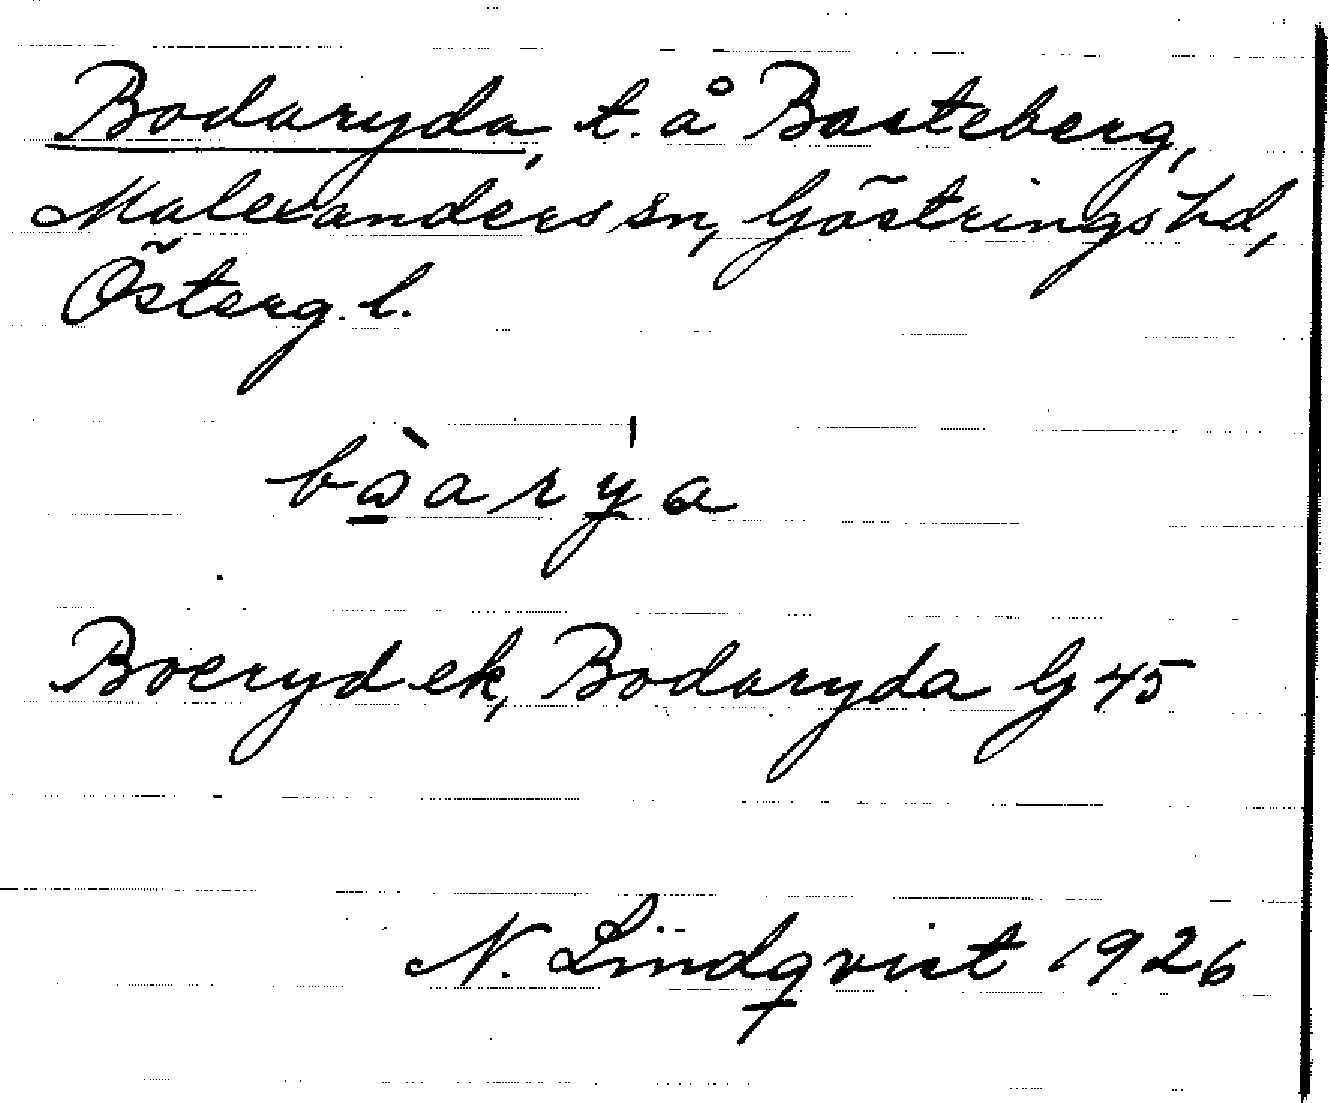 Bodaryda, t. å Basteberg,
Malexanders sn, Göstrings hd,
Österg. l.
bꞷ̀arýa
Boeryd ek, Bodaryda G 45
N. Lindqvist 1926